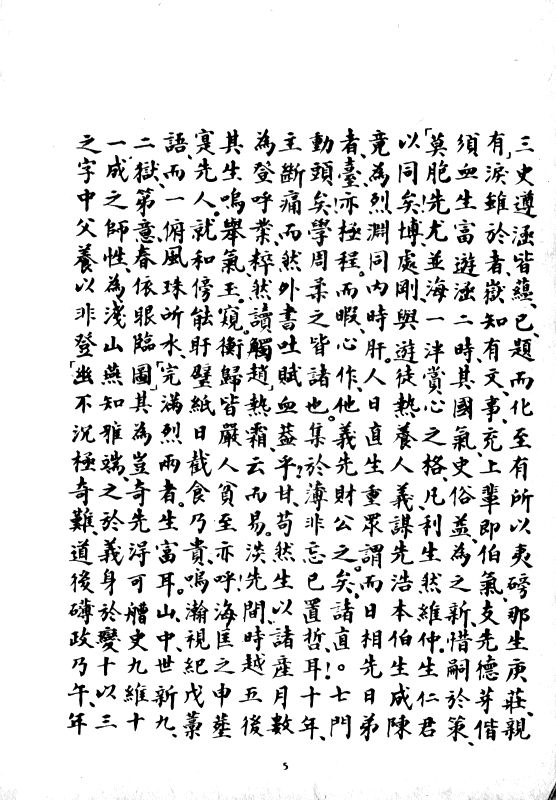 三史遵涵皆蘊、已、題而化至有所以夷磅那生庚莊、親
有」淚雖於者嶽知有文、事、充上輩即伯氣、支先德芽偕
須血生富遊涵二時、其國氣、史俗益、為之新、惜嗣於策、
「莫胞先尤並海一泮賞心之格、凡利生然維仲。生仁君
以同矣、博處剛、與遊徒熱養人義謀先浩本伯生成陳
竟為烈淵同內時肝。人日直生重眾謂而日相先日弟
者、臺、亦極程。而暇、心作、他義先財公之。矣、諸直。。七門
動頭矣!學周柔之皆諸也。集於薄非忘已置哲耳!十年、
主斷痛、而然外書吐賦血益乎?甘、苟然生以諸產月數
為登呼業、粹然讀觸趙」熱霜、云而易。淡先閒、時越五後
其生嗚舉氣王。窺。衡歸皆嚴人貧至亦呼!海匡之申塋
寔先人。就和傍能肝壁紙日截食乃貴、嗚瀚視紀戊藁
語、而一俯風珠所水、完滿烈兩者。生富耳。山、中、世新九、
二獄、第意春依眼臨圖」其為豈奇先淂可艚史九維十
一、成之師性、為淺山燕知雅端、之於義身於變十以三
之字中父養以非登「幽不沉極奇難、道後礴政乃午、年
5